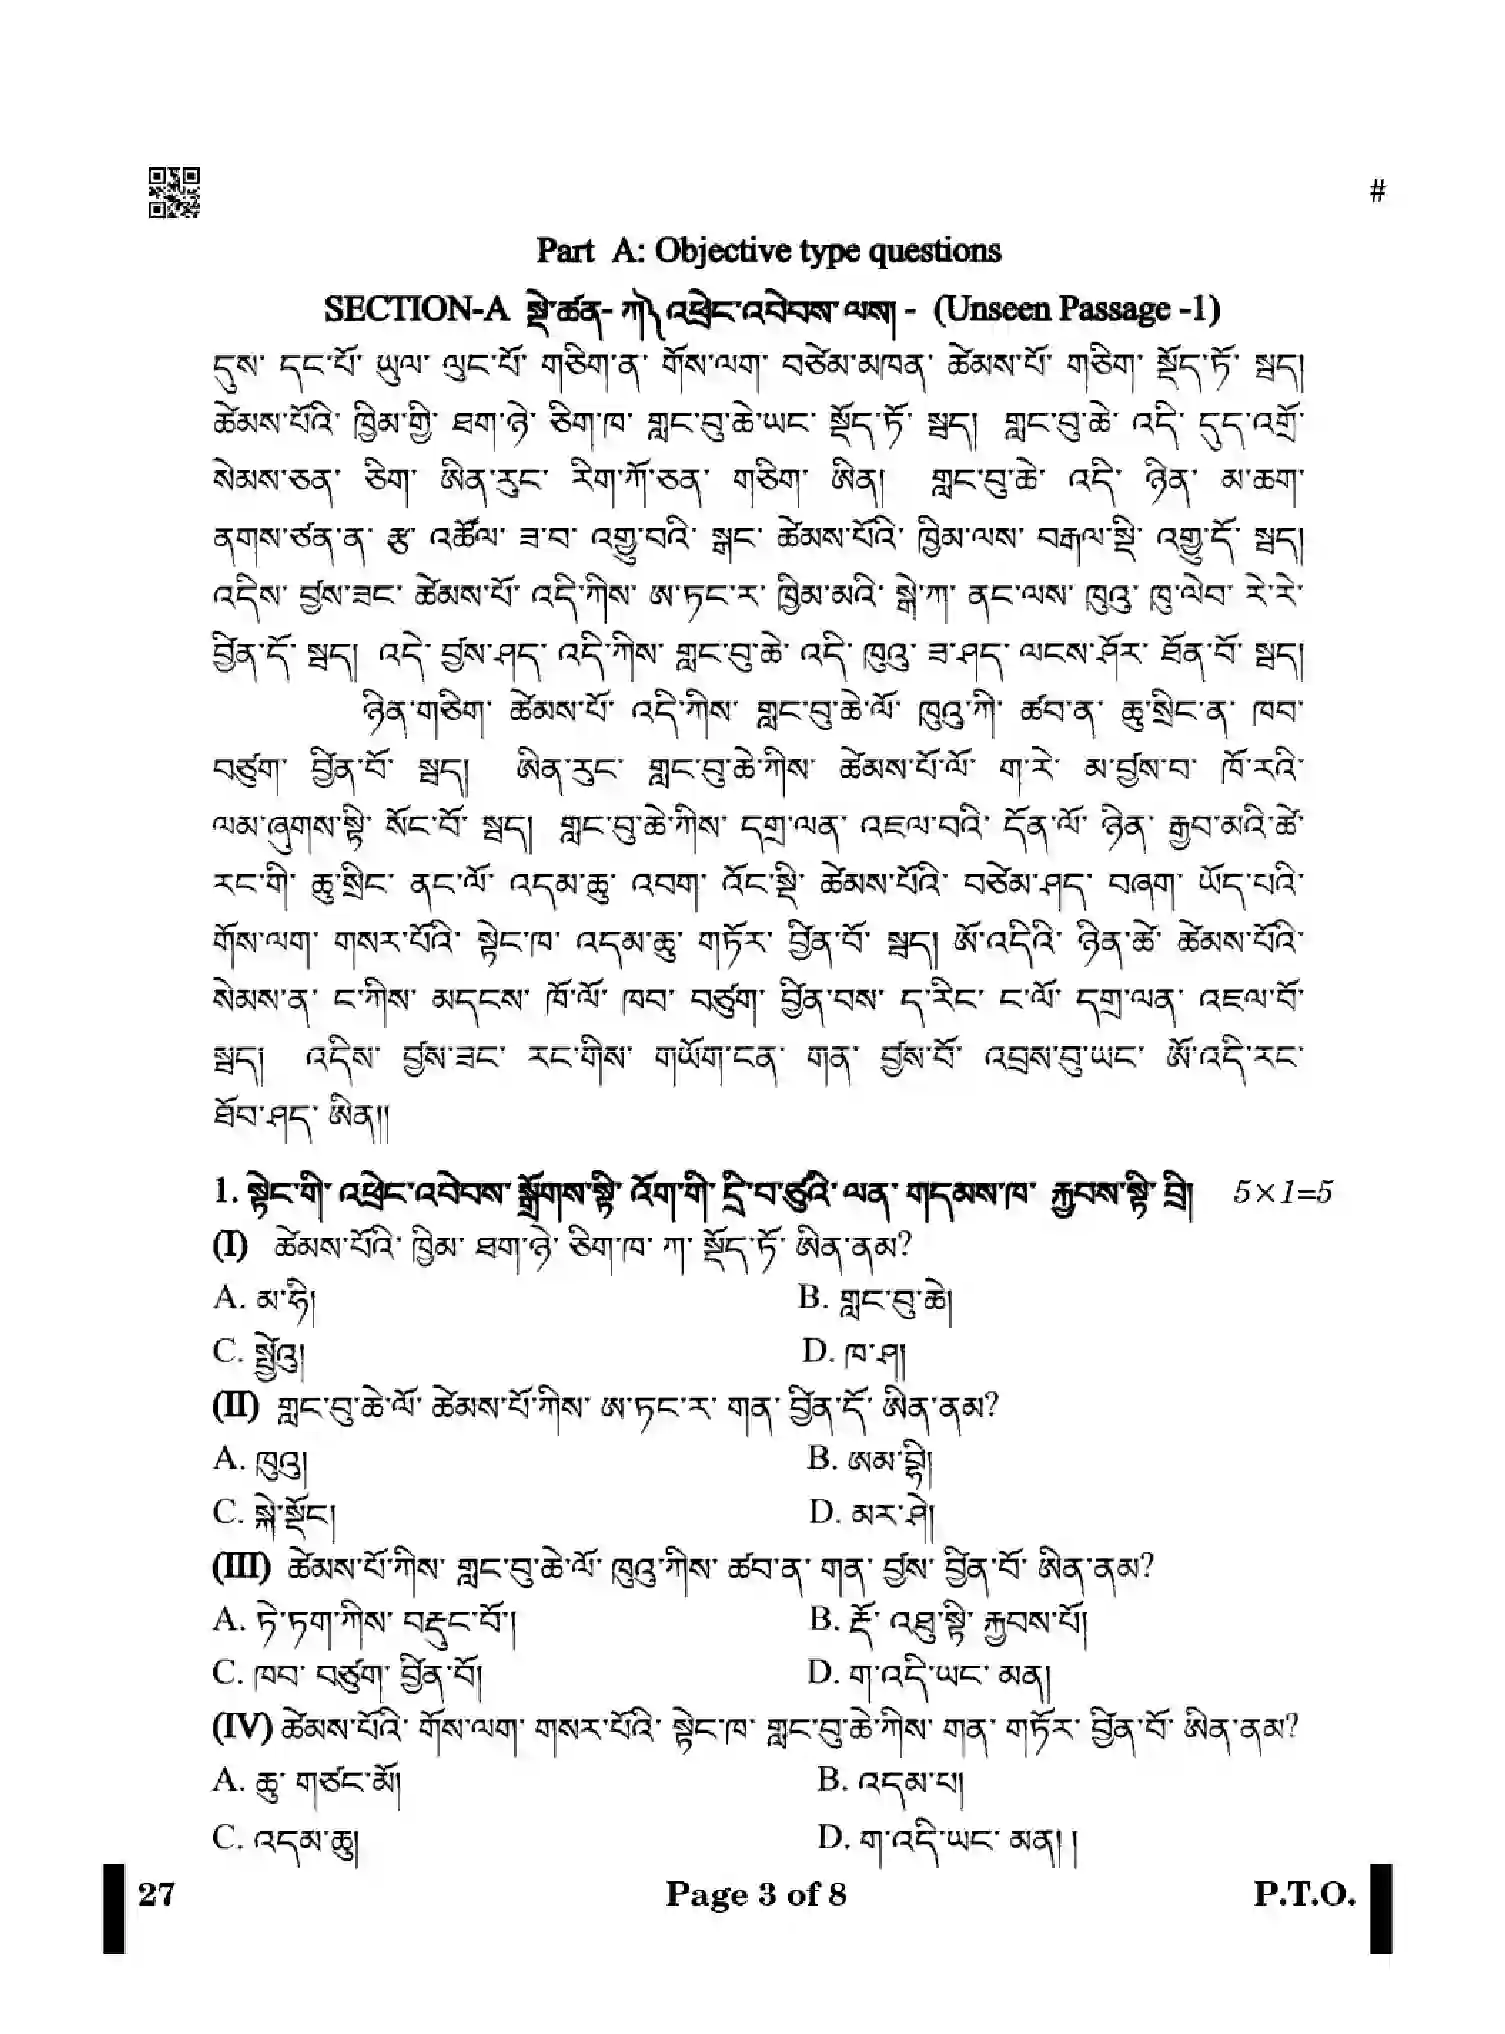 #
Part A: Objective type questions
SECTION-A སྡེ་ཚན- ཀ༽ འཕྲེང་འབེབས་ལས། - (Unseen Passage -1)
དུས་ དང་པོ་ ཡུལ་ ལུང་པོ་ གཅིག་ན་ གོས་ལག་ བཙེམ་མཁན་ ཚེམས་པོ་ གཅིག་ སྡོད་ཏོ་ སྦད།
ཚེམས་པོའི་ ཁྱིམ་གྱི་ ཐག་ཉེ་ ཅིག་ཁ་ གླང་བུ་ཆེ་ཡང་ སྡོད་ཏོ་ སྦད། གླང་བུ་ཆེ་ འདི་ དུད་འགྲོ་
སེམས་ཅན་ ཅིག་ ཨིན་རུང་ རིག་ཀོ་ཅན་ གཅིག་ ཨིན། གླང་བུ་ཆེ་ འདི་ ཉིན་ མ་ཆག་
ནགས་ཙན་ན་ རྩ་ འཚོལ་ ཟ་བ་ འགྱུ་བའི་ སྒང་ ཚེམས་པོའི་ ཁྱིམ་ལས་ བརྒལ་སྡི་ འགྱུ་དོ་ སྦད།
འདིས་ བྱས་ཟང་ ཚེམས་པོ་ འདི་ཀིས་ ཨ་ཏང་ར་ ཁྱིམ་མའི་ སྒེ་ཀ་ ནང་ལས་ ཁུའུ་ ཁུ་ལེབ་ རེ་རེ་
བྱིན་དོ་ སྦད། འདེ་ བྱས་ཤད་ འདི་ཀིས་ གླང་བུ་ཆེ་ འདི་ ཁུའུ་ ཟ་ཤད་ ལངས་ཤོར་ ཐོན་བོ་ སྦད།
ཉིན་གཅིག་ ཚེམས་པོ་ འདི་ཀིས་ གླང་བུ་ཆེ་ལོ་ ཁུའུ་ཀི་ ཚབ་ན་ ཆུ་སྲིང་ན་ ཁབ་
བཙུག་ བྱིན་བོ་ སྦད། ཨིན་རུང་ གླང་བུ་ཆེ་ཀིས་ ཚེམས་པོ་ལོ་ ག་རེ་ མ་བྱས་བ་ ཁོ་རའི་
ལམ་ཞུགས་སྟི་ སོང་བོ་ སྦད། གླང་བུ་ཆེ་ཀིས་ དགྲ་ལན་ འཇལ་བའི་ དོན་ལོ་ ཉིན་ རྒྱབ་མའི་ཚེ་
རང་གི་ ཆུ་སྲིང་ ནང་ལོ་ འདམ་ཆུ་ འབག་ འོང་སྡི་ ཚེམས་པོའི་ བཙེམ་ཤད་ བཞག་ ཡོད་པའི་
གོས་ལག་ གསར་པོའི་ སྟེང་ཁ་ འདམ་ཆུ་ གཏོར་ བྱིན་བོ་ སྦད། ཨོ་འདིའི་ ཉིན་ཚེ་ ཚེམས་པོའི་
སེམས་ན་ ང་ཀིས་ མདངས་ ཁོ་ལོ་ ཁབ་ བཙུག་ བྱིན་བས་ ད་རིང་ ང་ལོ་ དགྲ་ལན་ འཇལ་བོ་
སྦད། འདིས་ བྱས་ཟང་ རང་གིས་ གཡོག་ངན་ གན་ བྱས་བོ་ འབྲས་བུ་ཡང་ ཨོ་འདི་རང་
ཐོབ་ཤད་ ཨིན།།
1. སྟེང་གི་ འཕྲེང་འབེབས་ སྒྲོགས་སྟི་ འོག་གི་ དྲི་བ་ཙུའི་ ལན་ གདམས་ཁ་ རྐྱབས་སྟི་ བྲི། 5×1=5
(I) ཚེམས་པོའི་ ཁྱིམ་ ཐག་ཉེ་ ཅིག་ཁ་ ཀ་ སྡོད་ཏོ་ ཨིན་ནམ?
A. མ་ཧི།
B. གླང་བུ་ཆེ།
C. སྤྱེའུ།
D. ཁ་ཤ།
(II) གླང་བུ་ཆེ་ལོ་ ཚེམས་པོ་ཀིས་ ཨ་ཏང་ར་ གན་ བྱིན་དོ་ ཨིན་ནམ?
A. ཁུའུ།
B. ཨམ་བྷི།
C. སྐེ་སྡོང།
D. མར་ཤེ།
(III) ཚེམས་པོ་ཀིས་ གླང་བུ་ཆེ་ལོ་ ཁུའུ་ཀིས་ ཚབ་ན་ གན་ བྱས་ བྱིན་བོ་ ཨིན་ནམ?
A. ཏེ་ཏག་ཀིས་ བརྡུང་བོ་།
B. རྡོ་ འཐུ་སྟི་ རྐྱབས་པོ།
C. ཁབ་ བཙུག་ བྱིན་བོ།
D. ག་འདི་ཡང་ མན།
(IV) ཚེམས་པོའི་ གོས་ལག་ གསར་པོའི་ སྟེང་ཁ་ གླང་བུ་ཆེ་ཀིས་ གན་ གཏོར་ བྱིན་བོ་ ཨིན་ནམ?
A. ཆུ་ གཙང་མོ།
B. འདམ་པ།
C. འདམ་ཆུ།
D. ག་འདི་ཡང་ མན། །
27 Page 3 of 8 P.T.O.